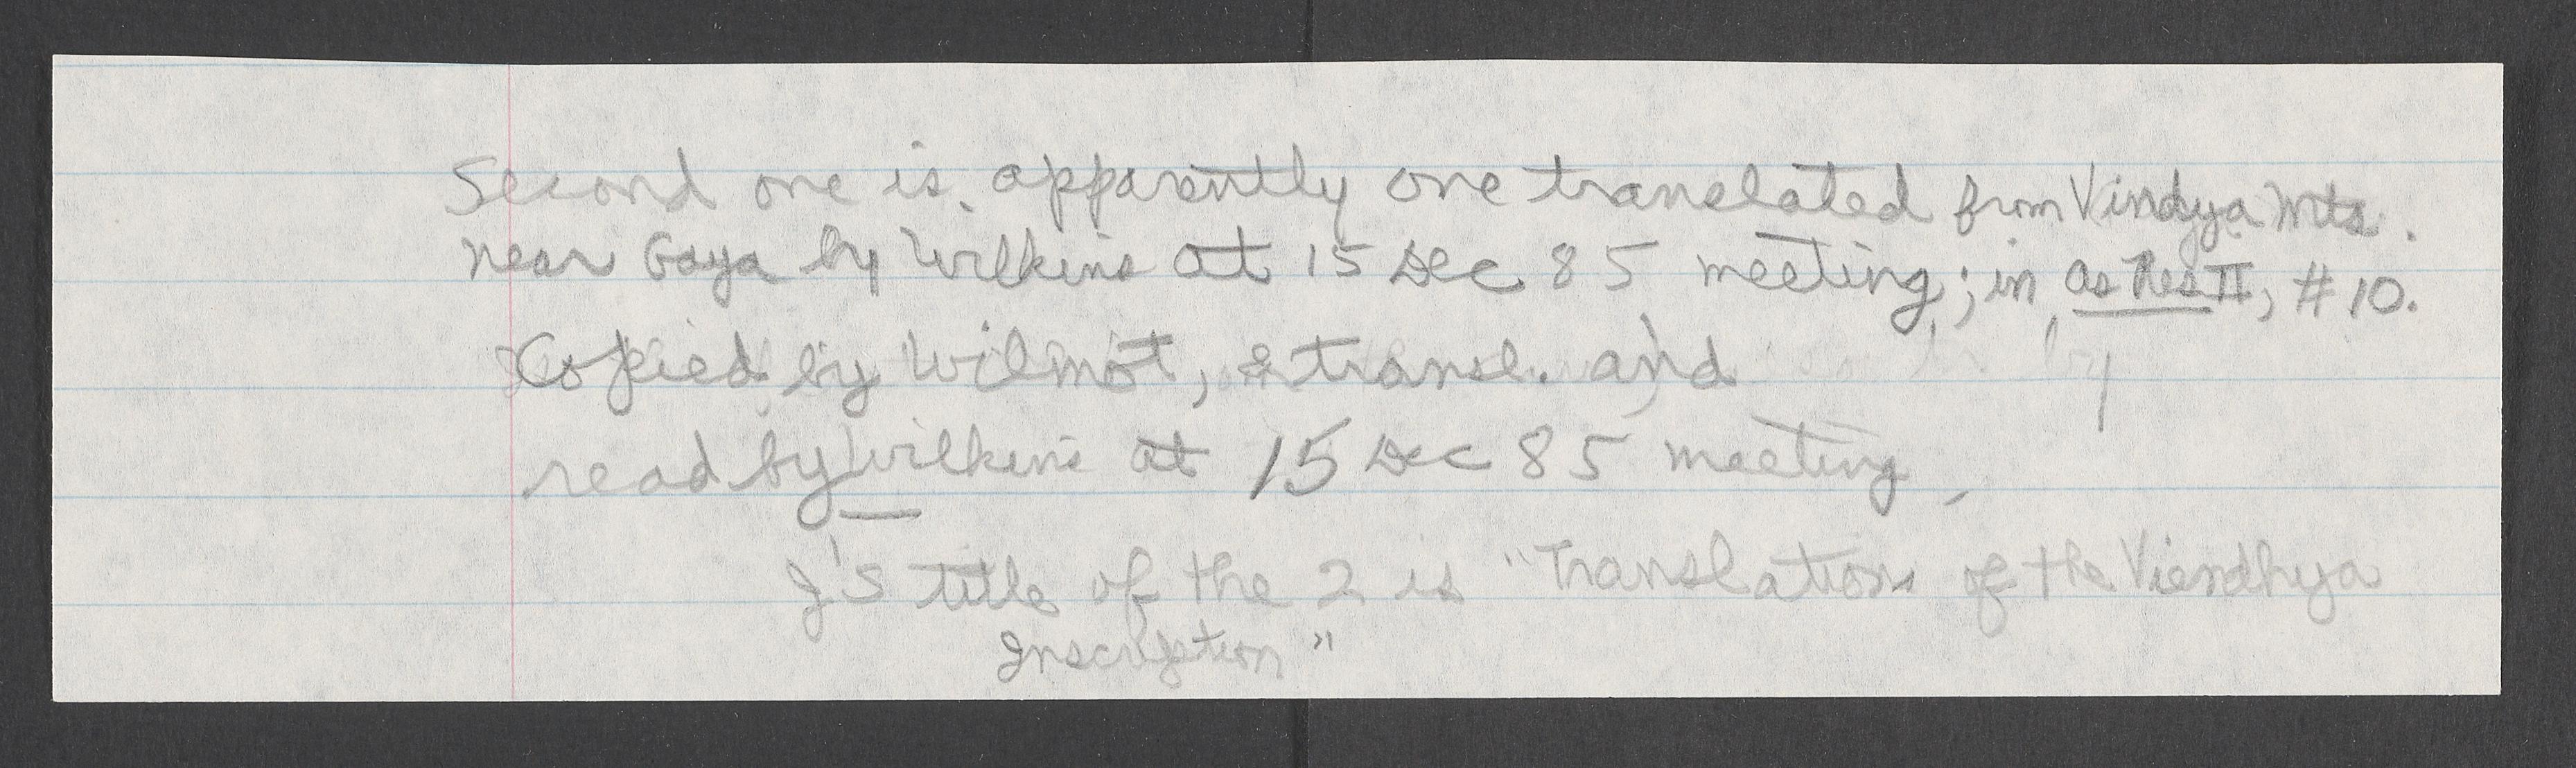 Second one is apparently one translated from Vindya Mts.
near Gaya by Wilkins at 15 Dec 85 meeting; in As Res II, #10.
Copied by Wilmot, & transl. and
read by Wilkins at 15 Dec 85 meeting,
J's title of the 2 is "Translations of the Viendhya
Inscription"